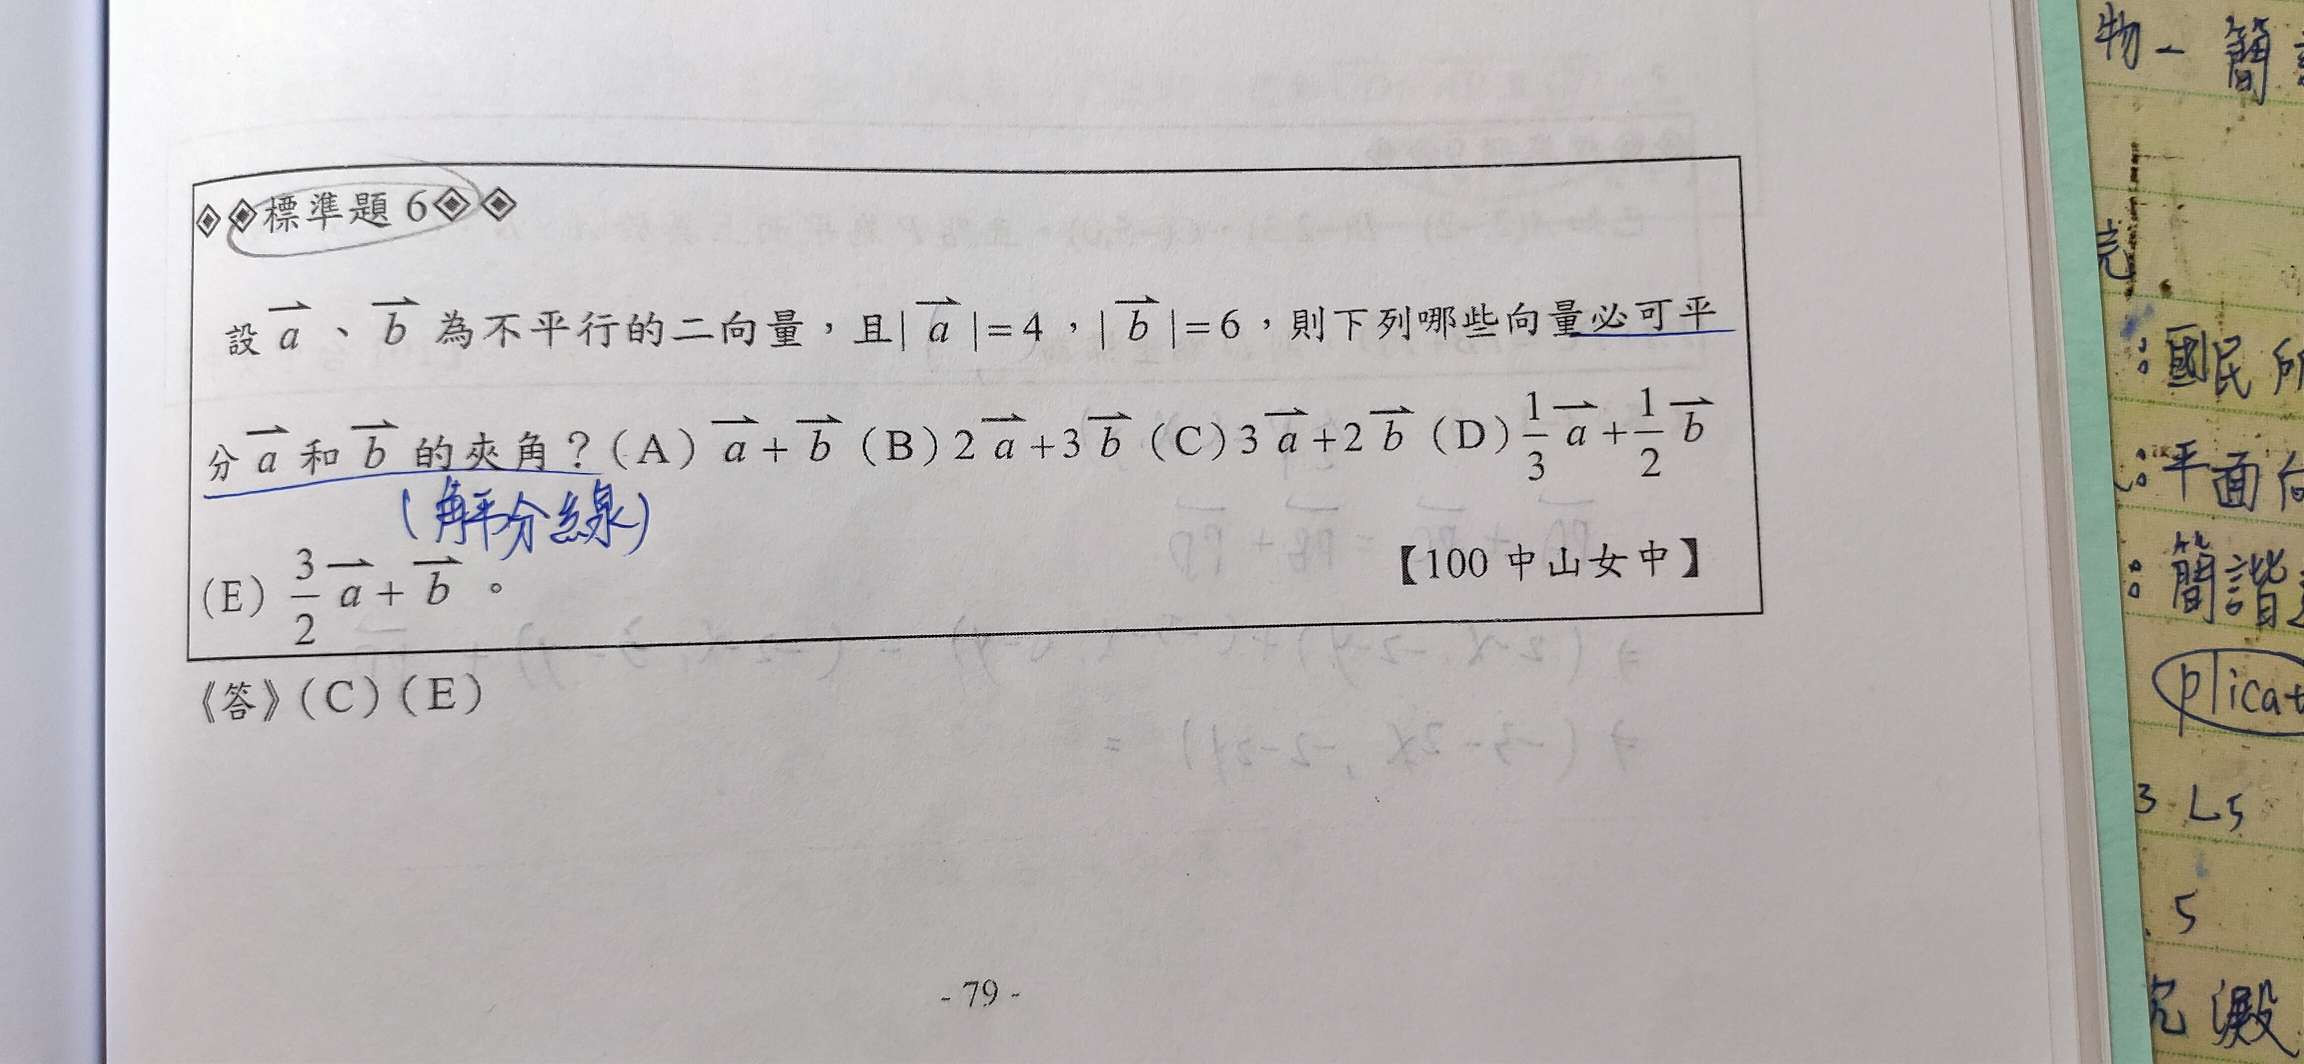 ◈◈標準題 6◈◈
設 a⃗ 、 b⃗ 為不平行的二向量，且| a⃗ |=4，| b⃗ |=6，則下列哪些向量必可平
分 a⃗ 和 b⃗ 的夾角？(A) a⃗ + b⃗ (B) 2 a⃗ +3 b⃗ (C) 3 a⃗ +2 b⃗ (D) 1/3 a⃗ + 1/2 b⃗
(角平分線)
(E) 3/2 a⃗ + b⃗ 。
【100 中山女中】
《答》(C)(E)
- 79 -
物一 簡
完
:國民所
:平面向
:簡諧
plicat
3 L5
5
完 澱